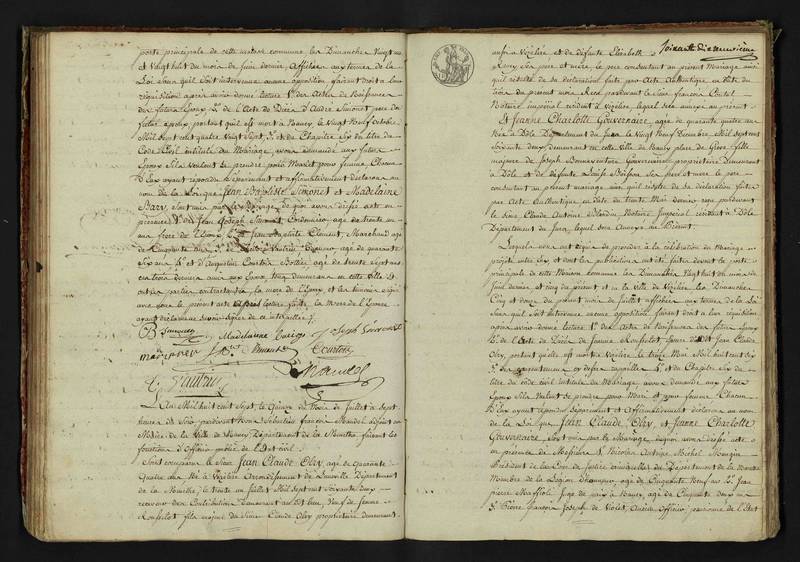 porte principale de cette maison commune les Dimanches Vingt un
et Vingt huit du mois de juin dernier, Affichées aux termes de la
Loi sans qu'il soit intervenu aucune opposition faisant droit à leur
réquisition après avoir donné lecture 1.º des Actes de Naissance
des futurs Epoux 2.º de l'Acte de Décès d'André Simonet pere du
futur époux portant qu'il est mort à Nancy, le Vingt Neuf octobre
Mil Sept cent quatre Vingt Sept, 3.º et du Chapitre Six du titre du
Code Civil intitulé du Mariage, avons demandé aux futurs
Epoux s'ils Veulent se prendre pour Mari et pour femme Chacun
D'Eux ayant répondu Séparément et affirmativement déclarons au
nom de la Loi que Jean Baptiste Simonet et Madelaine
sont unis par le Mariage, de quoi avons dressé acte en
présence de Jean Joseph Simonet Cordonnier, agé de trente un
ans frere de l'Epoux, Jean Baptiste Clement, Marchand agé
de Cinquante agé de quarante
Six ans 4.º et d'Augustin Courtois agé de trente Sept ans
les trois derniers amis aux Epoux tous demeurans en cette Ville Et
ont les parties contractantes, la mere de l'Epoux et les témoins signé
avec nous le présent acte après lecture faite, la Mere de l'Epouse
ayant déclaré ne savoir signer de ce interpellée
B Simonet Madelaine Joseph
Simonet Courtois
Gautrau Mandel
L'an Mil huit cent Sept, le quinze du Mois de Juillet à Sept
heures de Soir pardevant Nous Sebastien françois Mandel adjoint au
Maire de la Ville de Nancy Département de la Meurthe faisant les
fonctions d'Officier public de l'Etat civil
Sont comparus le Sieur Jean Claude Oley, agé de Quarante
Quatre ans Né à Vézelise Arrondissement de Luneville Département
de la Meurthe, le trente un Juillet Mil Sept cent Soixante deux
receveur des Contributions Demeurant audit lieu, Veuf de Jeanne
Rousselot, fils majeur du Sieur Claude Oley propriétaire demeurant
Soixante dix neuvième
audit Vézelise et de défunte Elizabeth
Rexy Ses pere et mere, le pere consentant au présent Mariage ainsi
qu'il résulte de sa déclaration faite par Acte Authentique en date du
trois du présent mois Reçu pardevant le Sieur françois Contal
Notaire impérial résidant à Vézelise, lequel sera annexé au présent
Et Jeanne Charlotte Gouvernaire, agée de quarante quatre ans
Née à Dôle Département du Jura, le Vingt Neuf Decembre Mil Sept cent
Soixante deux demeurant en cette Ville de Nancy place de Grêve fille
majeure de Joseph Bonaventure Gouvernaire, propriétaire Demeurant
à Dôle et de défunte Louise Boisson Ses pere et mere le pere
consentant au présent mariage ainsi qu'il résulte de sa déclaration faite
par Acte Authentique en date du trente Mai dernier reçu pardevant
le Sieur Claude Antoine Notaire Impérial résidant à Dôle
Département du Jura, lequel sera Annexé au Présent
Lesquels nous ont requis de procéder à la célébration du Mariage
projetté entre Eux et dont les publications ont été faites devant la porte
principale de cette Maison Commune les Dimanches Vingt huit du mois de
Juin dernier et cinq du présent et en la Ville de Vézelise les Dimanches
Cinq et douze du présent mois de Juillet affichées aux termes de la Loi
Sans qu'il soit intervenu aucune opposition faisant droit à leur réquisition
après avoir donné lecture 1.º des Actes de Naissance des futurs Epoux
2.º de l'Acte de Décès de Jeanne Rousselot femme dudit Jean Claude
Oley, portant qu'elle est morte à Vézelise le treize Mai Mil huit cent Six
3.º des consentemens cy dessus rappellés 4.º et du Chapitre Six du
titre du code civil intitulé du Mariage, avons demandé aux futurs
Epoux s'ils Veulent se prendre pour Mari et pour femme Chacun
D'Eux ayant répondu Séparément et Affirmativement déclarons au nom
de la Loi que Jean Claude Oley, et Jeanne Charlotte
Gouvernaire, Sont unis par le Mariage, de quoi avons dressé acte
en présence de Messieurs 1.º Nicolas Michel
Président de la Cour de Justice criminelle du Département de la Meurthe
Membre de la Legion d'honneur, agé de Cinquante Neuf ans 2.º Jean
pierre Juge de paix à Nancy, agé de Cinquante deux ans
3.º Pierre françois Joseph de Violet, ancien Officier, pensionné de l'Etat